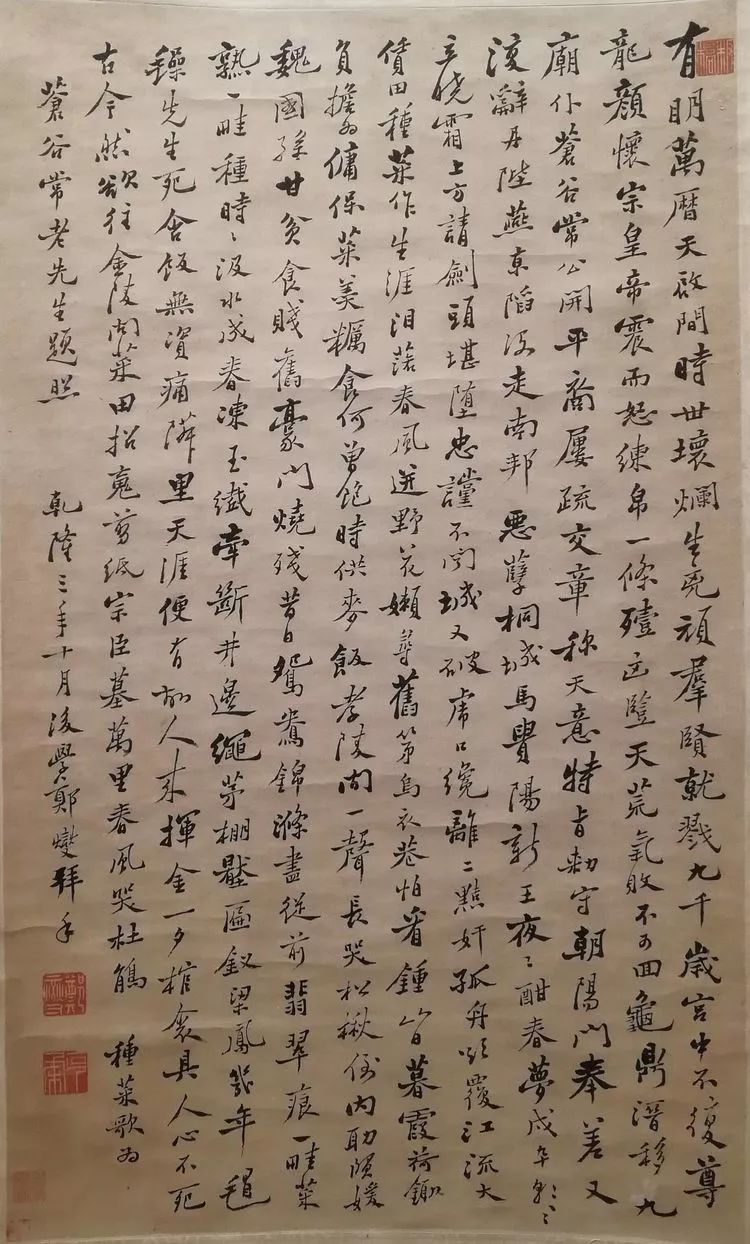 有明萬曆天啟間時世壞爛生兇頑羣賢就戮九千歲宮中不復尊
龍顏懷宗皇帝震而怒練帛一條殪豎天荒氣敗不可回龜鼎潛移九
廟仆蒼谷常公開平裔屢疏交章称天意特旨勅守朝陽門奉差又
復辭丹陛燕京陷沒走南邦惡孽桐城馬貴陽新王夜〻酣春夢成年〻
立曉霜上方請劍頭堪墮忠讜不聞城又破虎口纔離二點奸孤舟欲覆江流大
賃田種菜作生涯泪落春風迸野花嬾尋舊第烏衣巷怕看鍾山日暮霞荷鋤
負擔為傭保菜羹糲食何曾飽時供麥飯孝陵間一聲長哭松楸倒內助隕媛
魏國孫甘貧食賤舊豪門燒殘昔日鴛鴦錦滌盡從前翡翠痕一畦菜
熟一畦種時〻汲水成春凍玉纖牽斷井邊繩茅棚壓匾釵梁鳳幾年
先生死含飯無資痛隣里天涯便有故人來揮金一夕棺衾具人心不死
古今然欲往金陵問菜田招䰟剪紙宗臣墓萬里春風哭杜鵑 種菜歌為
蒼谷常老先生題照 乾隆三年十月後學鄭燮拜手